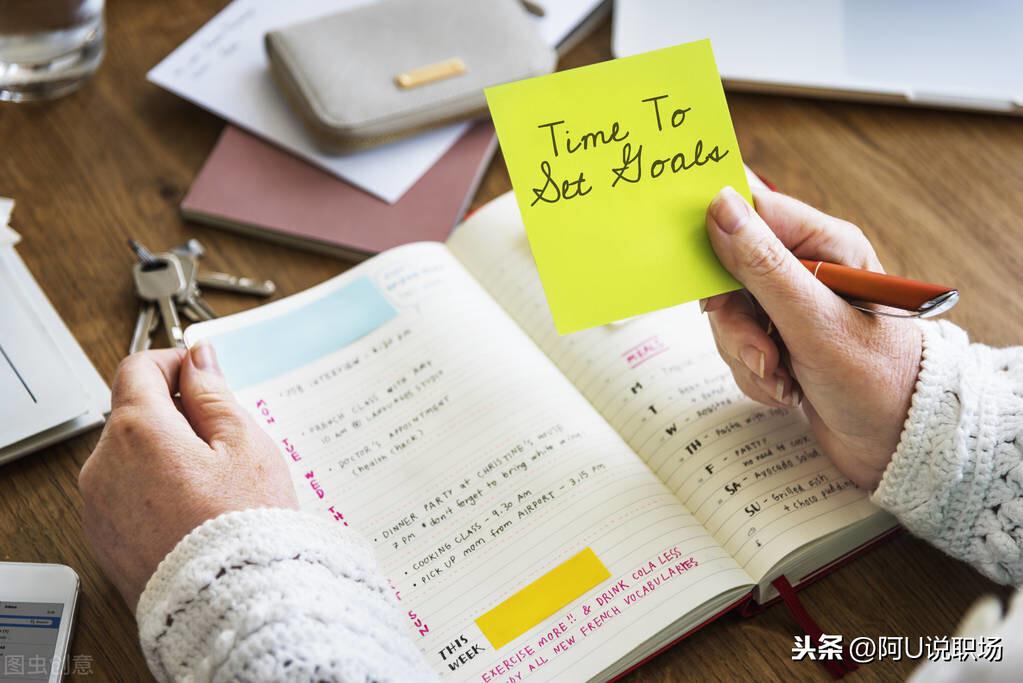 Time To
Set Goals
JOB INTERVIEW - 4:30 pm
MON TUE WED TH
SUN
• FRENCH CLASS WITH AMY
10 AM @ LANGUAGES STUDIO
• DOCTOR'S APPOINTMENT
(health check?)
• DINNER PARTY at CHRISTINE'S HOUSE
7 PM * don't forget to bring white wine
• COOKING CLASS - 9.30 AM
• PICK UP mom from AIRPORT - 3.15 PM
THIS
WEEK
EXERCISE MORE!! & DRINK COLA LESS
ALL NEW FRENCH VOCABULARIES
MEALS
M
T
W - Roasted
TH - Pasta with
F - PARTY
no need to cook
SA - Avocado Salad
SU - Grilled fish
+ choco pudding
Inbox
图虫创意
头条 @阿U说职场